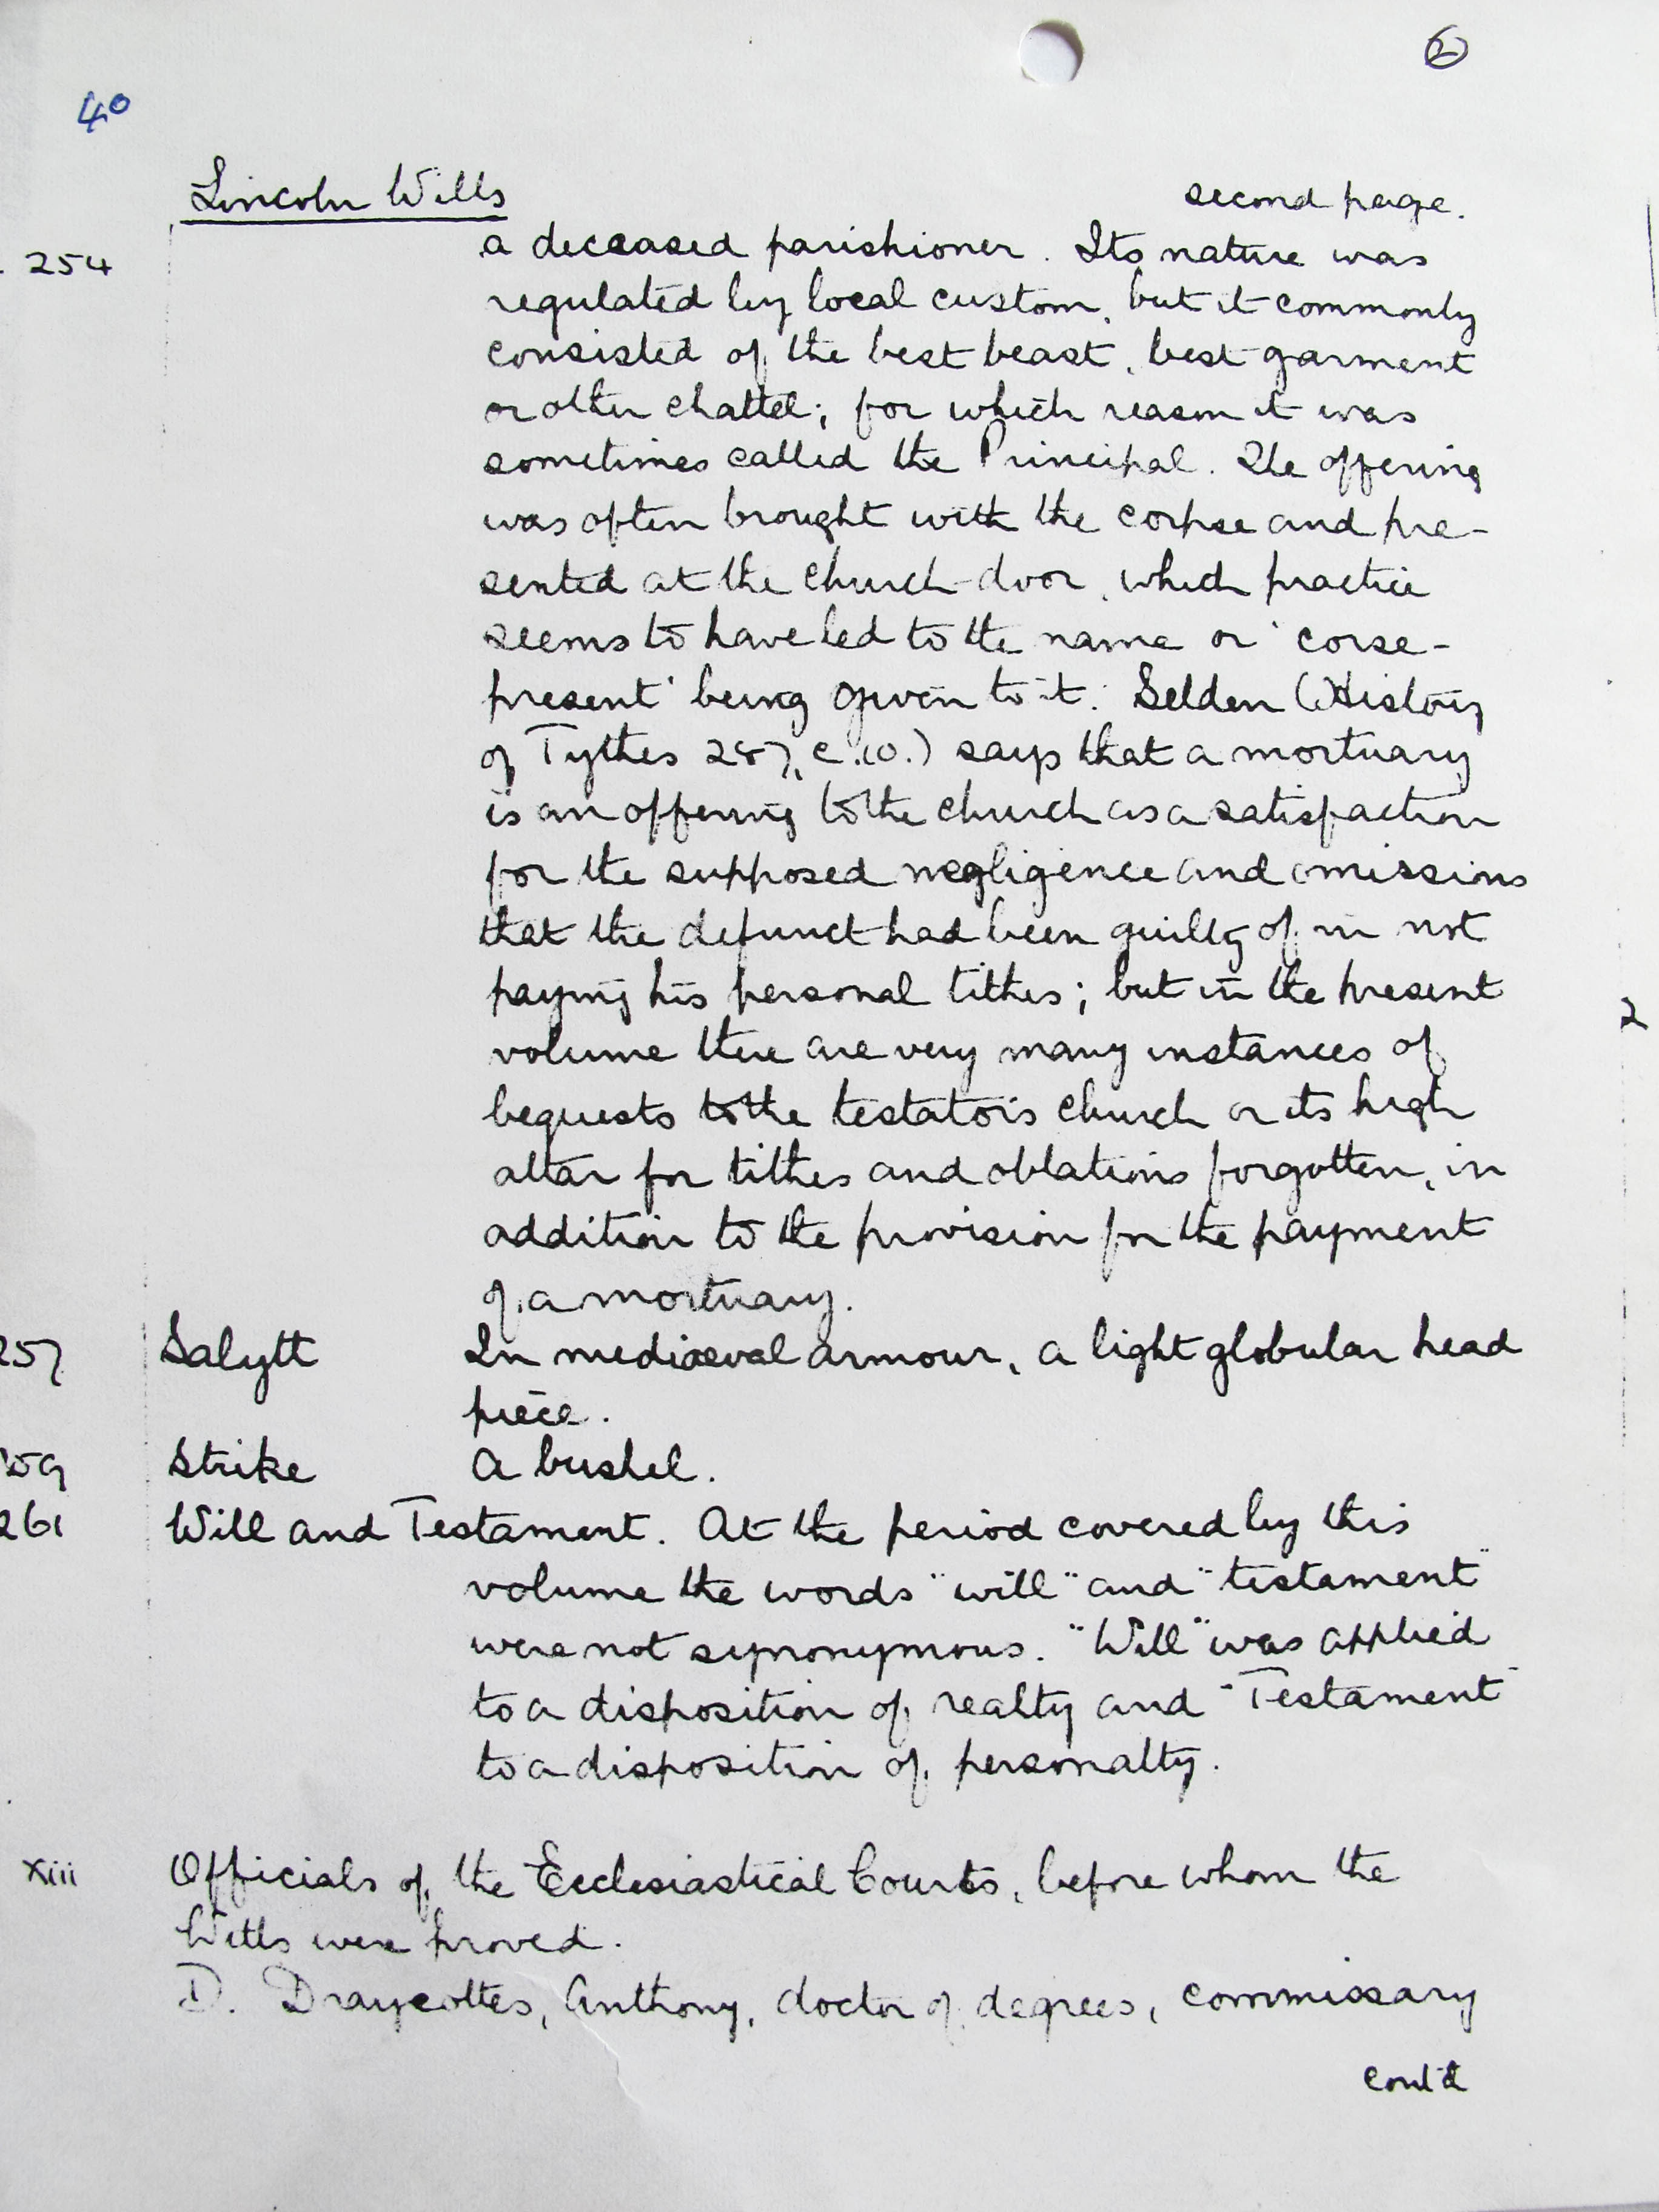 ②
40
Lincoln Wills second page.
254 a deceased parishioner. Its nature was
regulated by local custom, but it commonly
consisted of the best beast, best garment
or other chattel; for which reason it was
sometimes called the Principal. The offering
was often brought with the corpse and pre-
sented at the church-door, which practice
seems to have led to the name or 'corse-
present' being given to it. Selden (History
of Tythes 287, c.10.) says that a mortuary
is an offering to the church as a satisfaction
for the supposed negligence and omissions
that the defunct had been guilty of in not
paying his personal tithes; but in the present
2
volume there are very many instances of
bequests to the testator's church or its high
altar for tithes and oblations forgotten, in
addition to the provision for the payment
of a mortuary.
257 Salytt In mediaeval armour, a light globular head
piece.
259 Strike A bushel.
261 Will and Testament. At the period covered by this
volume the words "will" and "testament"
were not synonymous. "Will" was applied
to a disposition of realty and "Testament"
to a disposition of personalty.
xiii Officials of the Ecclesiastical Courts, before whom the
Wills were proved.
D. Draycottes, Anthony, doctor of degrees, commissary
cont'd